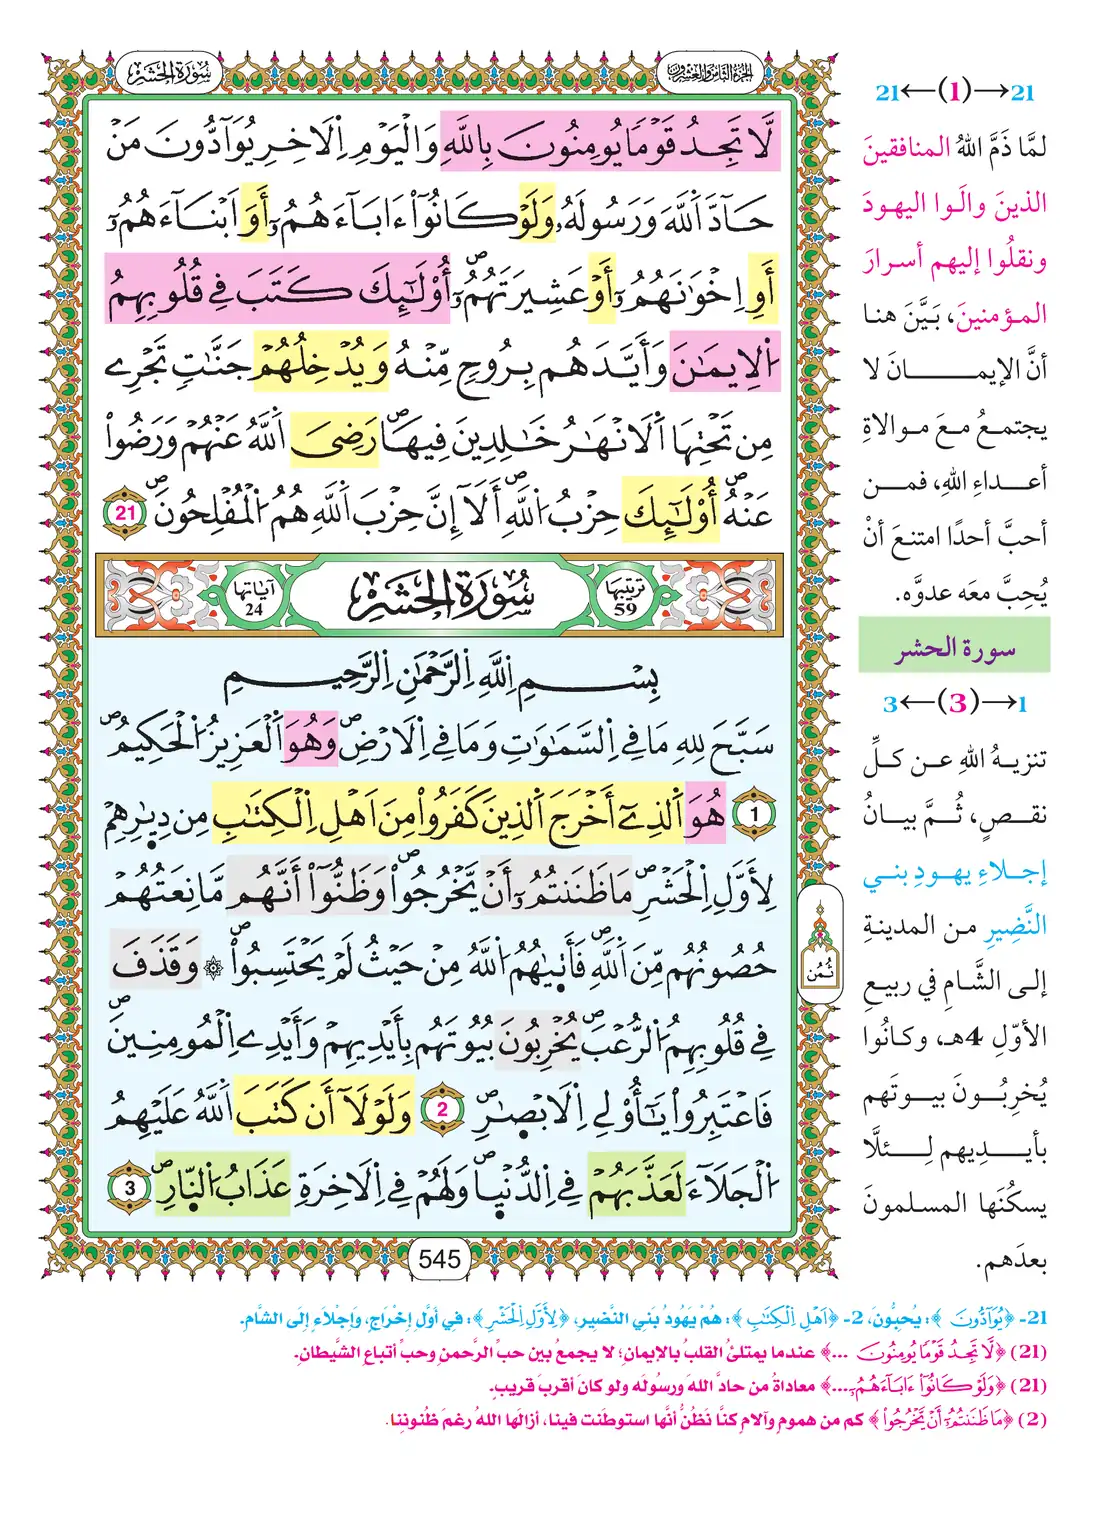 سُورَةُ الحَشْرِ
الجُزءُ الثَّامِنُ وَالعِشْرُونَ
لَّا تَجِدُ قَوْمًا يُومِنُونَ بِاللَّهِ وَالْيَوْمِ اِلَاخِرِ يُوَآدُّونَ مَنْ
حَآدَّ اَللَّهَ وَرَسُولَهُۥ وَلَوْ كَانُوٓاْ ءَابَآءَهُمُۥٓ أَوَ اَبْنَآءَهُمُۥٓ
أَوِ اِخْوَٰنَهُمُۥٓ أَوْ عَشِيرَتَهُمُۥٓۖ أُوْلَٰٓئِكَ كَتَبَ فِے قُلُوبِهِمُ
اُلِايمَٰنَ وَأَيَّدَهُم بِرُوحٖ مِّنْهُ وَيُدْخِلُهُمْ جَنَّٰتٖ تَجْرِے
مِن تَحْتِهَا اَلَانْهَٰرُ خَٰلِدِينَ فِيهَاۖ رَضِىَ اَللَّهُ عَنْهُمْ وَرَضُواْ
عَنْهُۖ أُوْلَٰٓئِكَ حِزْبُ اُللَّهِۖ أَلَآ إِنَّ حِزْبَ اَللَّهِ هُمُ اُلْمُفْلِحُونَۖ 21
تَرتيبُهَا 59 سُورَةُ الحَشْرِ آيَاتها 24
بِسْمِ اِللَّهِ اِلرَّحْمَٰنِ اِلرَّحِيمِ
سَبَّحَ لِلهِ مَا فِے اِلسَّمَٰوَٰتِ وَمَا فِے اِلَارْضِۖ وَهُوَ اَلْعَزِيزُ اُلْحَكِيمُۖ
1 هُوَ اَلذِےٓ أَخْرَجَ اَلذِينَ كَفَرُواْ مِنَ اَهْلِ اِلْكِتَٰبِ مِن دِيٰ۪رِهِمْ
لِأَوَّلِ اِلْحَشْرِۖ مَا ظَنَنتُمُۥٓ أَنْ يَّخْرُجُواْۖ وَظَنُّوٓاْ أَنَّهُم مَّانِعَتُهُمْ
حُصُونُهُم مِّنَ اَللَّهِۖ فَأَت۪يٰهُمُ اُللَّهُ مِنْ حَيْثُ لَمْ يَحْتَسِبُواْۖ ۞ وَقَذَفَ
فِے قُلُوبِهِمُ اُلرُّعْبَۖ يُخْرِبُونَ بُيُوتَهُم بِأَيْدِيهِمْ وَأَيْدِے اِلْمُومِنِينَۖ
فَاعْتَبِرُواْ يَٰٓأُوْلِے اِلَابْصٰ۪رِۖ 2 وَلَوْلَآ أَن كَتَبَ اَللَّهُ عَلَيْهِمُ
اُلْجَلَآءَ لَعَذَّبَهُمْ فِے اِلدُّنْي۪اۖ وَلَهُمْ فِے اِلَاخِرَةِ عَذَابُ اُلنّ۪ارِۖ 3
ثُمُن
545
21←(1)→21
لمَّا ذَمَّ اللهُ المنافقينَ
الذينَ والَوا اليهودَ
ونقلُوا إليهم أسرارَ
المؤمنينَ، بَيَّنَ هنا
أنَّ الإيمانَ لا
يجتمعُ مَعَ موالاةِ
أعداءِ اللهِ، فمن
أحبَّ أحدًا امتنعَ أنْ
يُحِبَّ معَه عدوَّه.
سورة الحشر
3←(3)→1
تنزيهُ اللهِ عن كلِّ
نقصٍ، ثُمَّ بيانُ
إجلاءِ يهودِ بني
النَّضِيرِ من المدينةِ
إلى الشَّامِ في ربيع
الأوّلِ 4هـ، وكانُوا
يُخرِبُونَ بيوتَهم
بأيدِيهم لِئلَّا
يسكُنَها المسلمونَ
بعدَهم.
21- ﴿يُوَآدُّونَ﴾: يُحبُّونَ، 2- ﴿اَهْلِ اِلْكِتَٰبِ﴾: هُمْ يَهُودُ بَنِي النَّضِيرِ، ﴿لِأَوَّلِ اِلْحَشْرِ﴾: فِي أوَّلِ إخْرَاجٍ، وَإجْلَاءٍ إلَى الشَّام.
(21) ﴿لَّا تَجِدُ قَوْمًا يُومِنُونَ ...﴾ عندما يمتلئُ القلبُ بالإيمانِ؛ لا يجمعُ بين حبِّ الرحمنِ وحبِّ أتباعِ الشَّيطانِ.
(21) ﴿وَلَوْ كَانُوٓاْ ءَابَآءَهُمُۥٓ...﴾ معاداةُ من حادَّ اللهَ ورسُولَه ولو كانَ أقربَ قريبٍ.
(2) ﴿مَا ظَنَنتُمُۥٓ أَنْ يَّخْرُجُواْ﴾ كم من همومٍ وآلامٍ كنَّا نَظُنُّ أنَّها استوطَنت فينا، أزالَها اللهُ رغمَ ظُنونِنا.